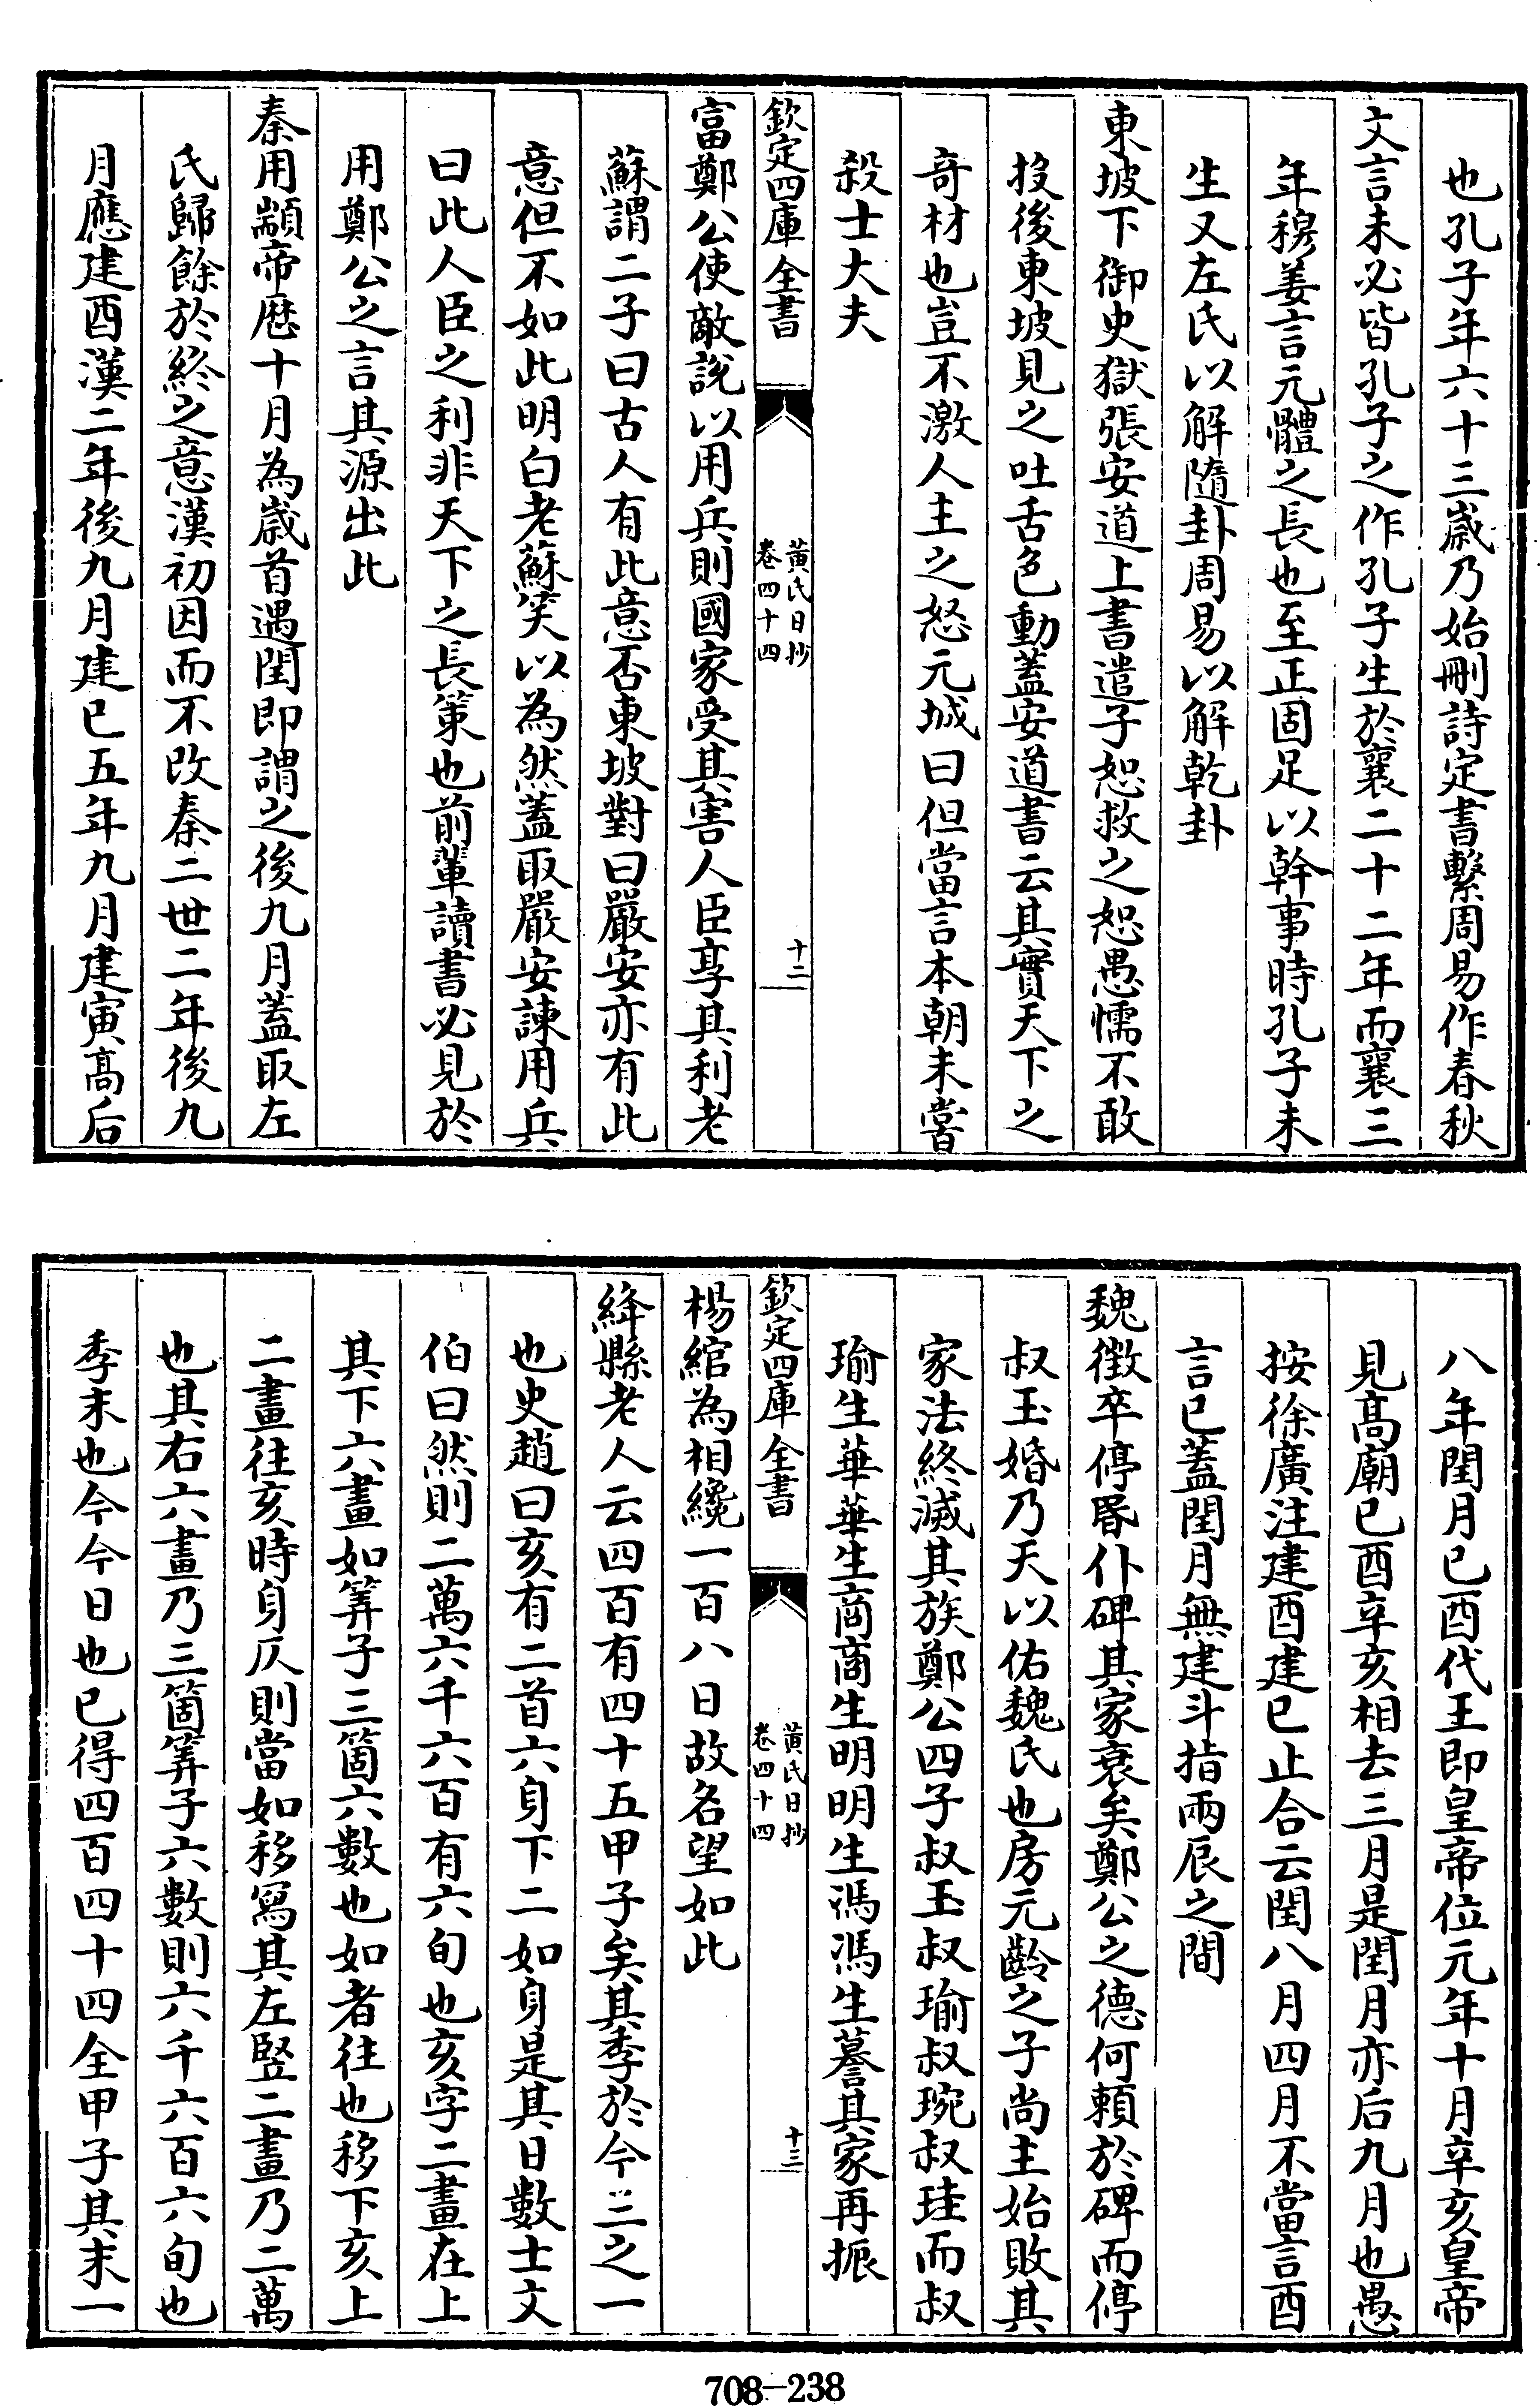 也孔子年六十三歲乃始刪詩定書繫周易作春秋
文言未必皆孔子之作孔子生於襄二十二年而襄三
年穆姜言元體之長也至正固足以幹事時孔子未
生又左氏以解隨卦周易以解乾卦
東坡下御史獄張安道上書遣子恕救之恕愚懦不敢
投後東坡見之吐舌色動蓋安道書云其實天下之
奇材也豈不激人主之怒元城曰但當言本朝未嘗
殺士大夫
欽定四庫全書
黃氏日抄
卷四十四
十二
富鄭公使敵說以用兵則國家受其害人臣享其利老
蘇謂二子曰古人有此意否東坡對曰嚴安亦有此
意但不如此明白老蘇笑以為然蓋取嚴安諫用兵
曰此人臣之利非天下之長策也前輩讀書必見於
用鄭公之言其源出此
秦用顓帝歷十月為歲首遇閏即謂之後九月蓋取左
氏歸餘於終之意漢初因而不改秦二世二年後九
月應建酉漢二年後九月建巳五年九月建寅高后
八年閏月己酉代王即皇帝位元年十月辛亥皇帝
見高廟己酉辛亥相去三月是閏月亦后九月也愚
按徐廣注建酉建巳止合云閏八月四月不當言酉
言巳蓋閏月無建斗指兩辰之間
魏徵卒停昬仆碑其家衰矣鄭公之德何賴於碑而停
叔玉婚乃天以佑魏氏也房元齡之子尚主始敗其
家法終滅其族鄭公四子叔玉叔瑜叔琬叔珪而叔
瑜生華華生商商生明明生馮馮生謩其家再振
欽定四庫全書
黃氏日抄
卷四十四
十三
楊綰為相纔一百八日故名望如此
絳縣老人云四百有四十五甲子矣其季於今三之一
也史趙曰亥有二首六身下二如身是其日數士文
伯曰然則二萬六千六百有六旬也亥字二畫在上
其下六畫如筭子三箇六數也如者往也移下亥上
二畫往亥時身仄則當如移寫其左豎二畫乃二萬
也其右六畫乃三箇筭子六數則六千六百六旬也
季末也今今日也已得四百四十四全甲子其末一
708-238